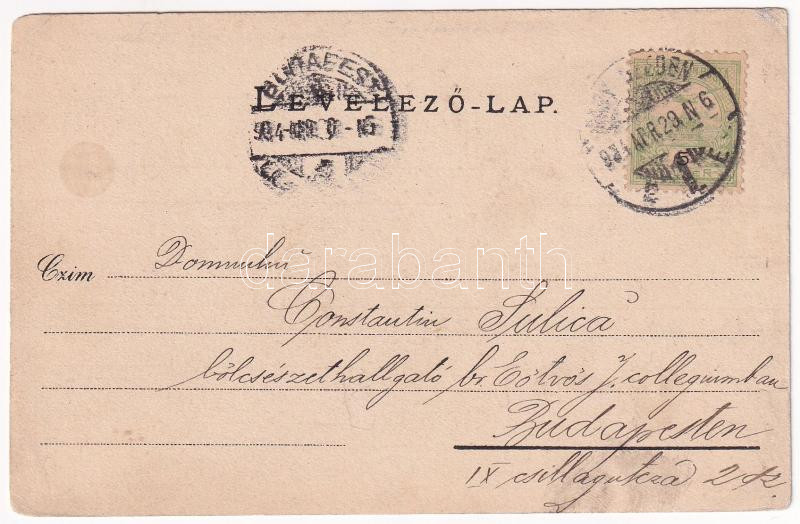 BUDAPEST
LEVELEZŐ-LAP.
904 APR. 29. N 6
Czim Domnului
Constantin Sulica
bölcsészethallgató br. Eötvös J. collegiumban
Budapesten
IX csillagutcza 2 sz.
darabanth